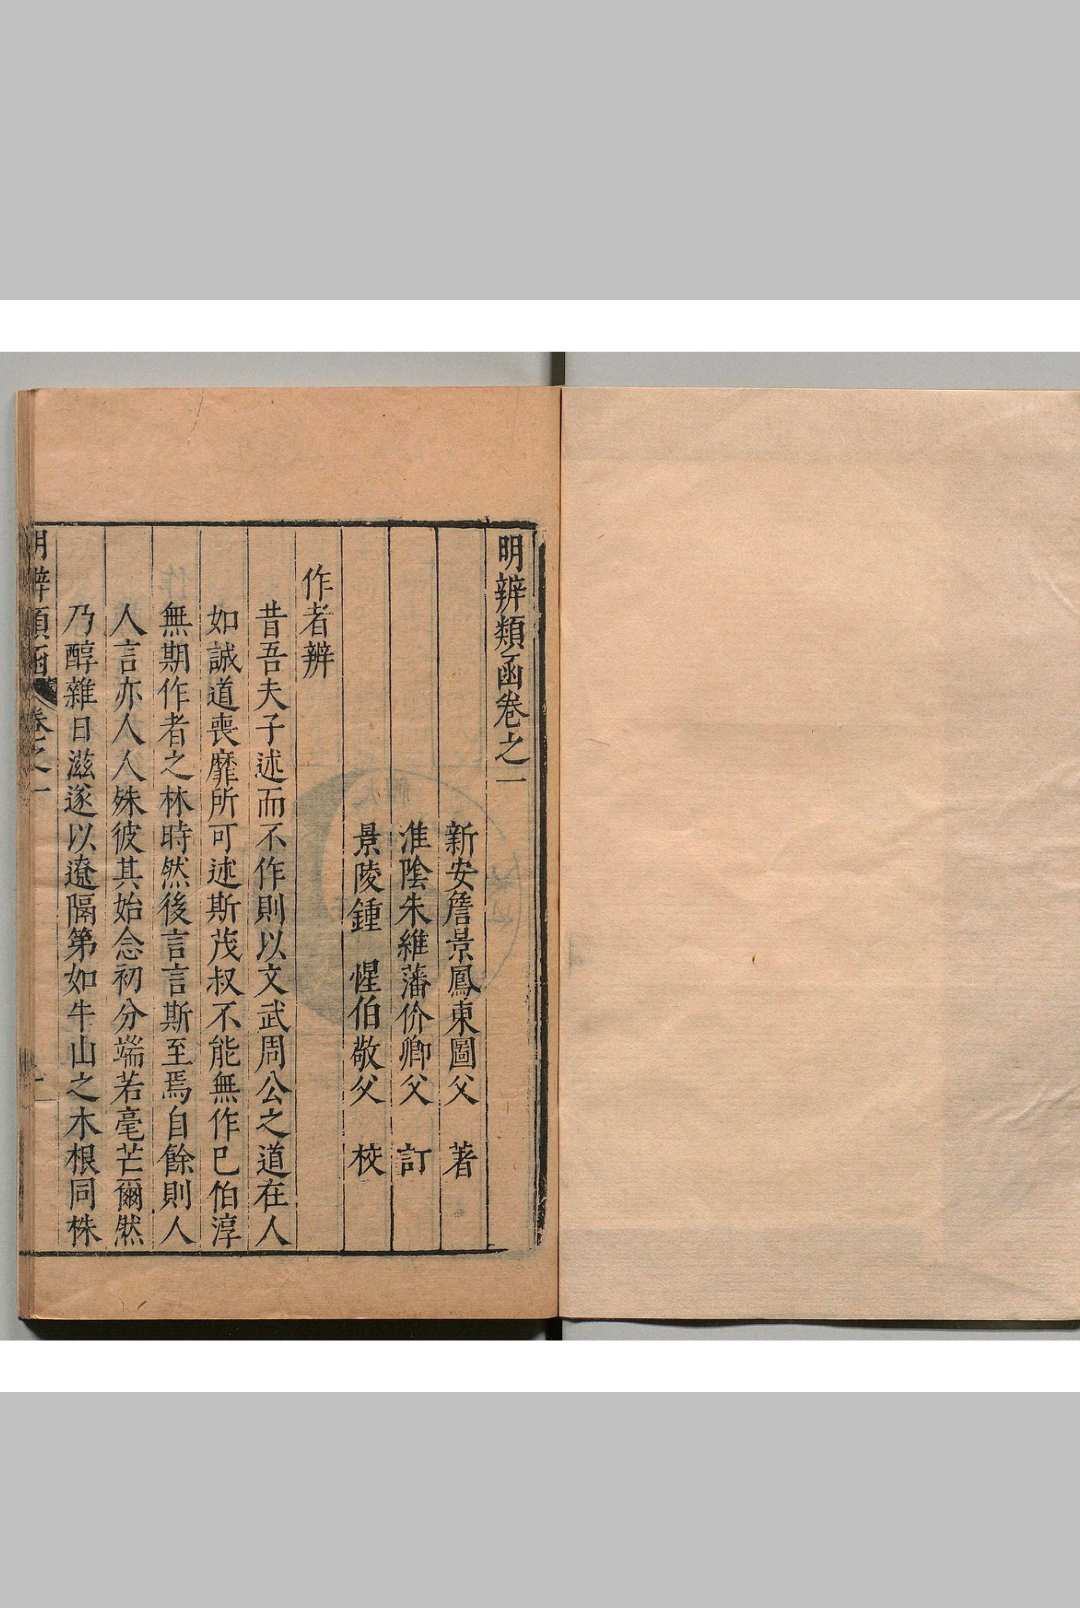 明辨類函卷之一
新安詹景鳳東圖父 著
淮陰朱維藩价卿父 訂
景陵鍾 惺伯敬父 校
作者辨
昔吾夫子述而不作則以文武周公之道在人
如誠道喪靡所可述斯茂叔不能無作已伯淳
無期作者之林時然後言言斯至焉自餘則人
人言亦人人殊彼其始念初分端若毫芒爾然
乃醇雜日滋遂以遼隔第如牛山之木根同株
明辨類函 卷之一 一